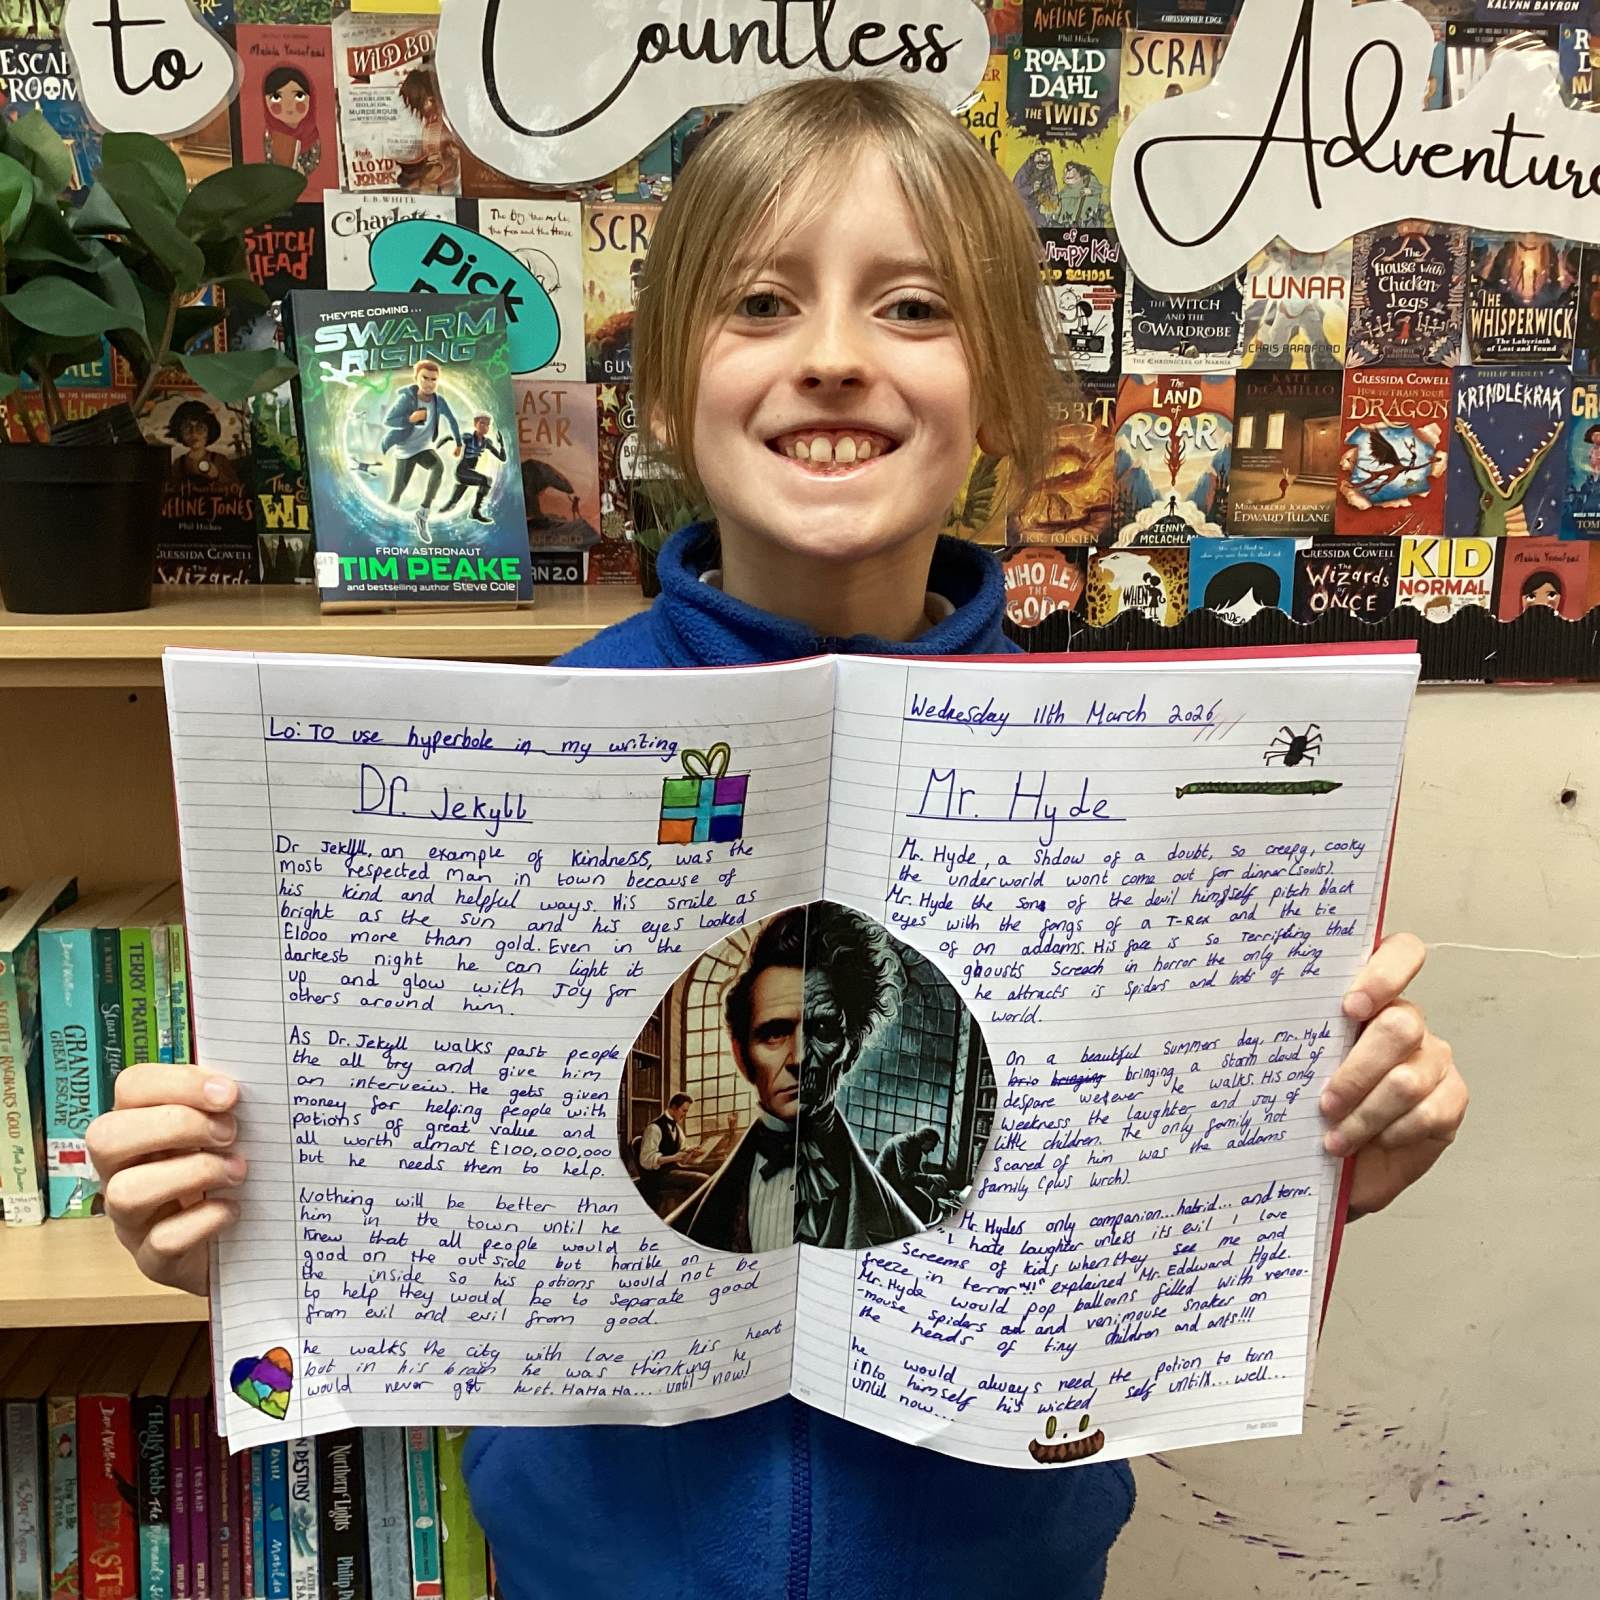 to
Countless
Adventure
ESCAPE
ROOM
Malala Yousafzai
WILD BOY
LLOYD
JONES
E.B. WHITE
STITCH
HEAD
Pick
The Boy, the mole,
the fox and the Horse
SCR
AVELINE JONES
Phil Hickes
ROALD
DAHL
THE TWITS
SCRAP
CHRISTOPHER EDGE
KALYNN BAYRON
of a
Wimpy Kid
OLD SCHOOL
THE WITCH
AND THE
WARDROBE
THE CHRONICLES OF NARNIA
LUNAR
CHRIS BRADFORD
The
House with
Chicken
Legs
THE
WHISPERWICK
The Labyrinth
of Lost and Found
THEY'RE COMING ...
SWARM
RISING
FROM ASTRONAUT
TIM PEAKE
and bestselling author Steve Cole
LAST
BEAR
AVELINE JONES
Phil Hickes
CRESSIDA COWELL
The
Wizards
The
LAND
of
ROAR
JENNY
MCLACHLAN
J.R.R. TOLKIEN
KATE
DiCAMILLO
THE
MIRACULOUS JOURNEY OF
EDWARD TULANE
CRESSIDA COWELL
HOW TO TRAIN YOUR
DRAGON
PHILIP RIDLEY
KRINDLEKRAX
WHO LET
THE
GODS
WHEN
CRESSIDA COWELL
The
WIZARDS
of
ONCE
KID
NORMAL
Malala Yousafzai
Lo: To use hyperbole in my writing
Dr. Jekyll
Dr Jekyll, an example of kindness, was the
most respected man in town because of
his kind and helpful ways. His smile as
bright as the sun and his eyes looked
£1000 more than gold. Even in the
darkest night he can light it
up and glow with Joy for
others around him.
As Dr. Jekyll walks past people
the all bry and give him
an interveiw. He gets given
money for helping people with
potions of great value and
all worth almost £100,000,000
but he needs them to help.
Nothing will be better than
him in the town until he
knew that all people would be
good on the outside but horrible on
the inside so his potions would not be
to help they would be to separate good
from evil and evil from good.
he walks the city with love in his heart
but in his brain he was thinking he
would never get hurt. HaHaHa.... until now!
Wednesday 11th March 2026
Mr. Hyde
Mr. Hyde, a shdow of a doubt, so creepy, cooky
the underworld wont come out for dinner (souls).
Mr. Hyde the son of the devil himself pitch black
eyes with the fangs of a T-Rex and the tie
of an addams. His face is so terrifiing that
ghousts screach in horror the only thing
he attracts is spiders and bats of the
world.
On a beautiful summers day, Mr. Hyde
brio bringing bringing a storm cloud of
despare werever he walks. His only
weekness the laughter and Joy of
little children. The only family not
scared of him was the addams
family (plus lurch).
Mr. Hydes only companion... habrid... and terror.
"I hate laughter unless its evil I love
screems of kids when they see me and
freeze in terror"!!" explained Mr. Eddward Hyde.
Mr. Hyde would pop balloons filled with venoo-
-mouse spiders and and venimouse snakes on
the heads of tiny children and ants!!!
he would always need the potion to turn
into himself his wicked self until... well...
until now...
GRANDPA'S
GREAT ESCAPE
TERRY PRATCHETT
RAGNAR'S GOLD
David Walliams
BEAST
Holly Webb
Matilda
DESTINY
Northern Lights
Philip